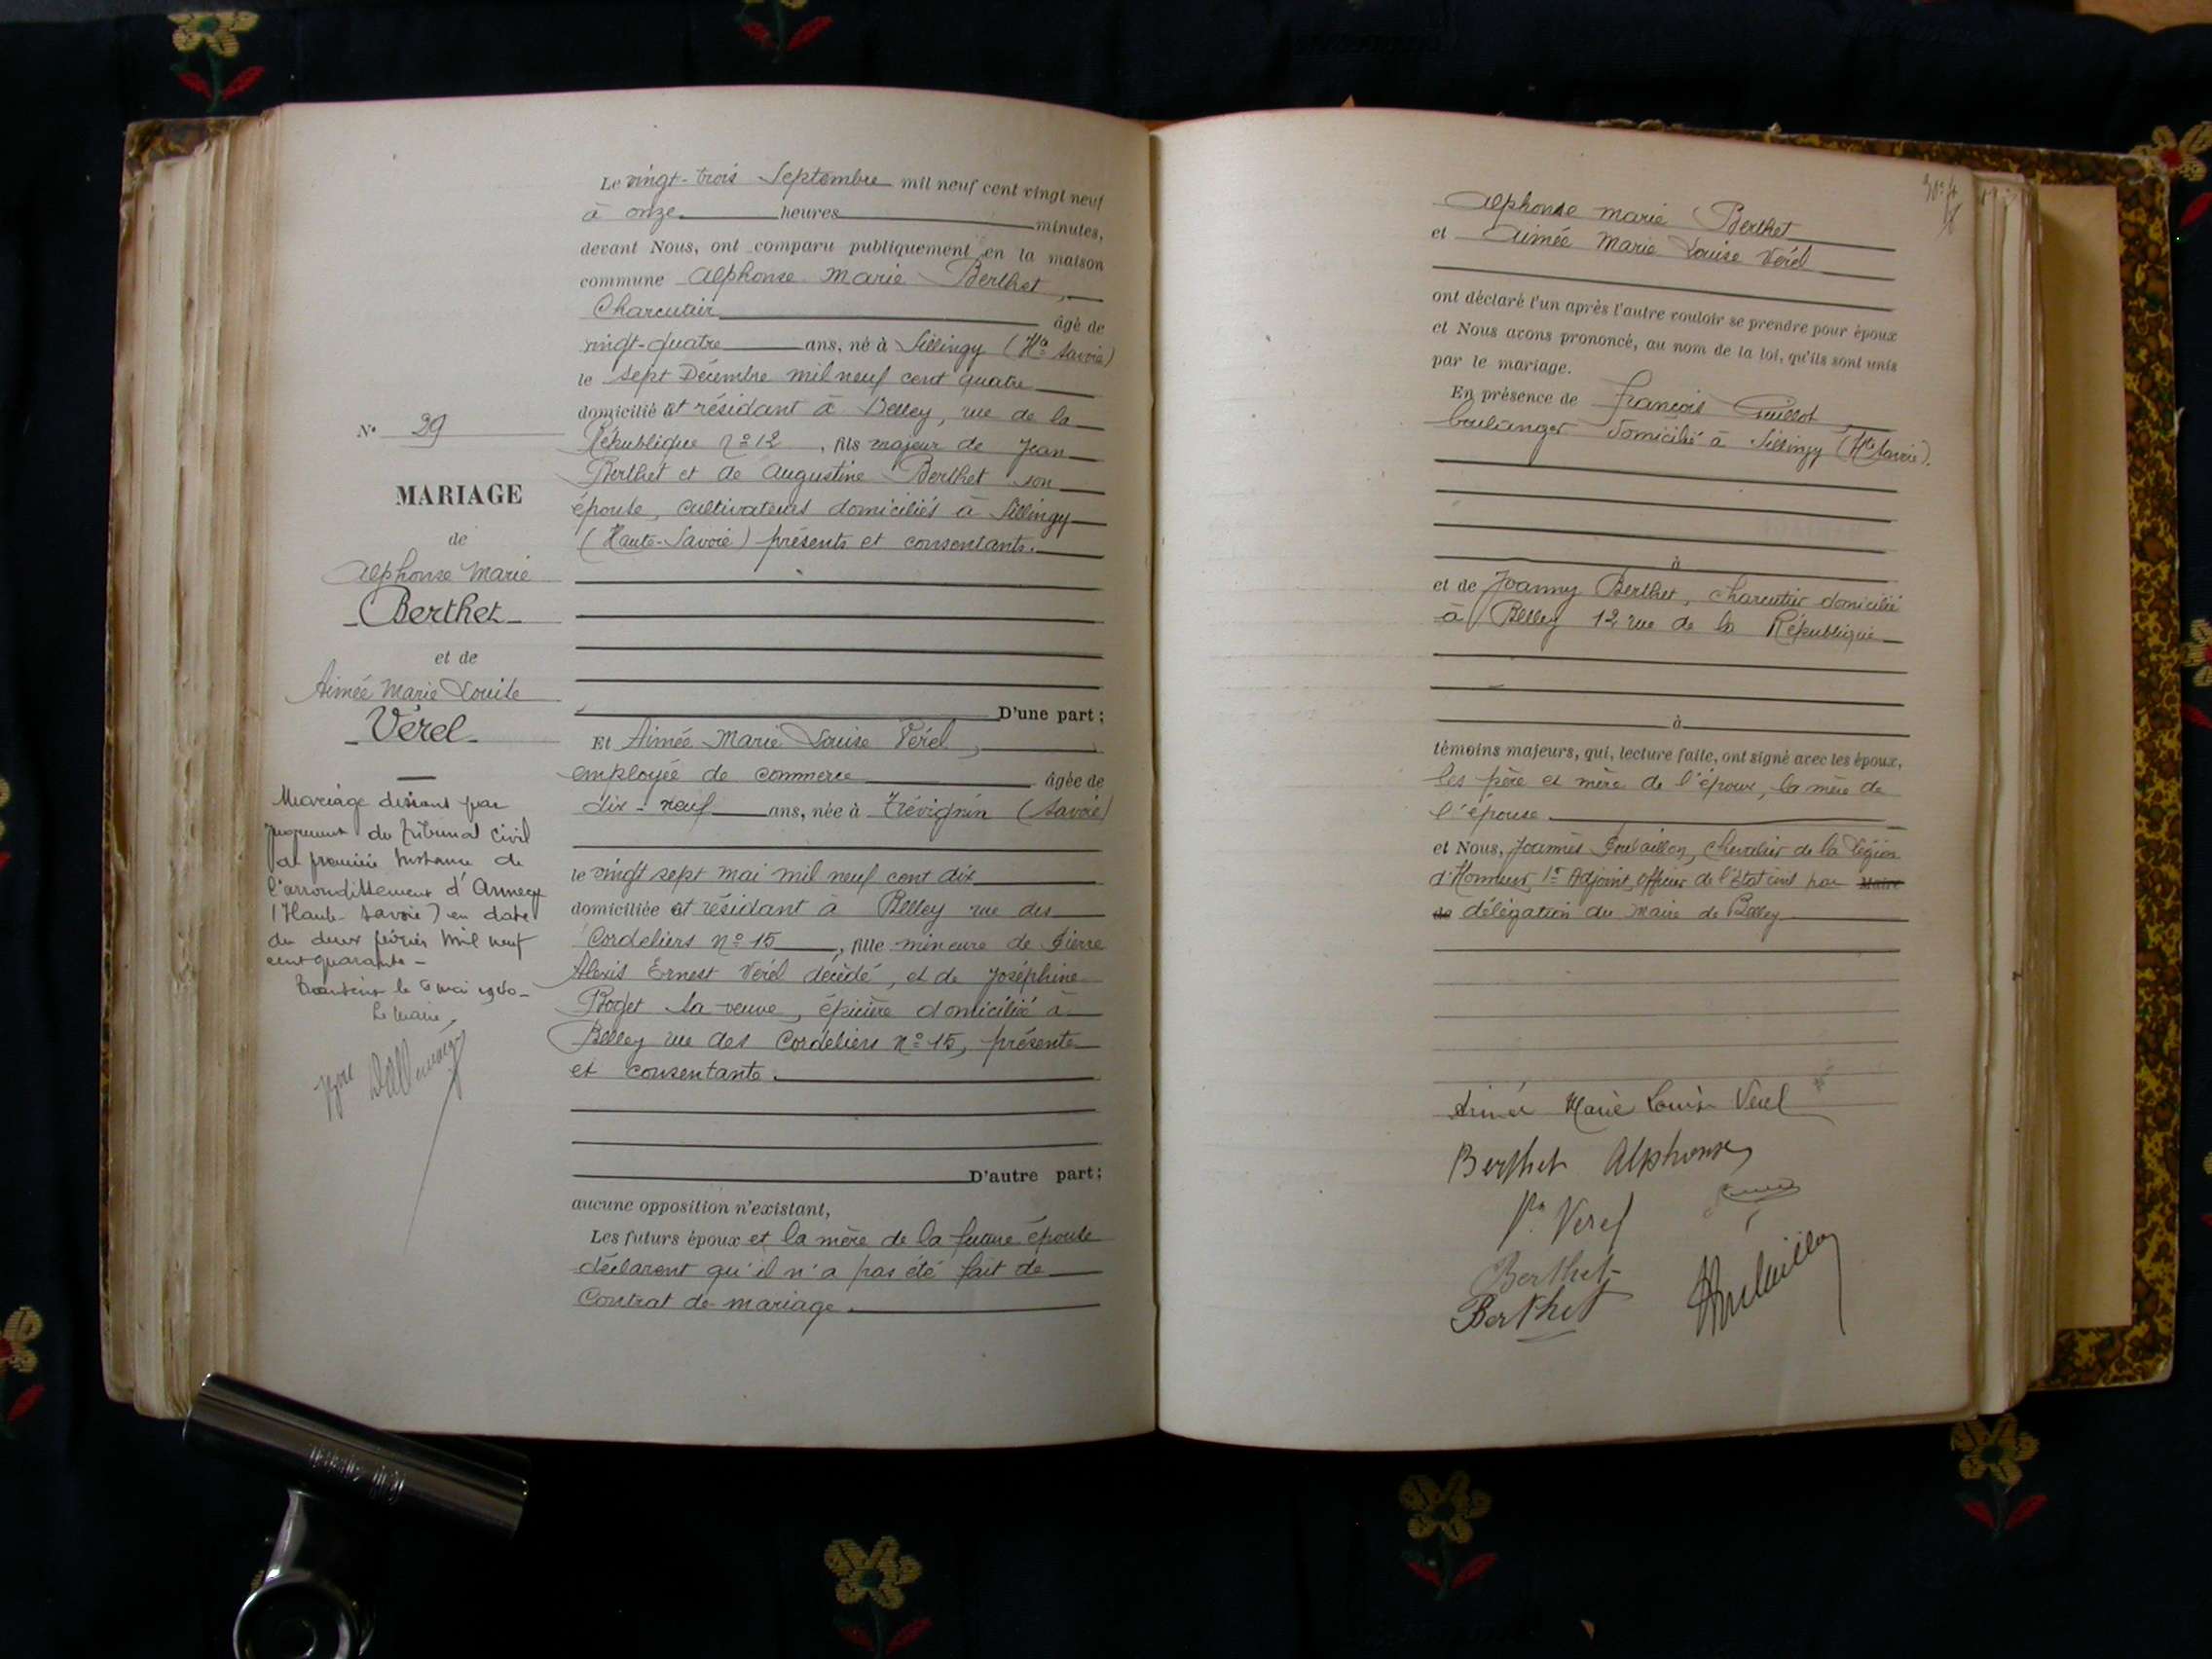 N° 39
MARIAGE
de
Alphonse Marie
Berthet
et de
Aimée Marie Louise
Vérel
Mariage dissous par
jugement du tribunal civil
de première instance de
l'arrondissement d'Annecy
(Haute-Savoie) en date
du deux février mil neuf
cent quarante -
le 6 mai 1940 -
Le Maire,
Le vingt-trois Septembre mil neuf cent vingt neuf
à onze heures minutes,
devant Nous, ont comparu publiquement en la maison
commune Alphonse Marie Berthet,
Charcutier âgé de
vingt-quatre ans, né à Sillingy (Hte Savoie)
le sept Décembre mil neuf cent quatre
domicilié et résidant à Belley, rue de la
République n° 12, fils majeur de Jean
Berthet et de Augustine Berthet son
épouse, cultivateurs domiciliés à Sillingy
(Haute-Savoie) présents et consentants.
D'une part;
Et Aimée Marie Louise Vérel,
employée de commerce âgée de
dix-neuf ans, née à Trévignin (Savoie)
le vingt sept mai mil neuf cent dix
domiciliée et résidant à Belley rue des
Cordeliers n° 15, fille mineure de Pierre
Alexis Ernest Vérel décédé, et de Joséphine
sa veuve, épicière domiciliée à
Belley rue des Cordeliers n° 15, présente
et consentante.
D'autre part;
aucune opposition n'existant,
Les futurs époux et la mère de la future épouse
déclarent qu'il n'a pas été fait de
Contrat de mariage.
Alphonse Marie Berthet
et Aimée Marie Louise Vérel
ont déclaré l'un après l'autre vouloir se prendre pour époux
et Nous avons prononcé, au nom de la loi, qu'ils sont unis
par le mariage.
En présence de François Guillot
boulanger domicilié à Sillingy (Hte Savoie).
à
et de Joanny Berthet, charcutier domicilié
à Belley 12 rue de la République
à
témoins majeurs, qui, lecture faite, ont signé avec les époux,
les père et mère de l'époux, la mère de
l'épouse
et Nous, Joannès, Chevalier de la Légion
d'Honneur, 1er Adjoint, officier de l'Etat civil par Maire
de délégation du Maire de Belley
Aimée Marie Louise Verel
Berthet Alphonse
Verel
Berthet
Berthet